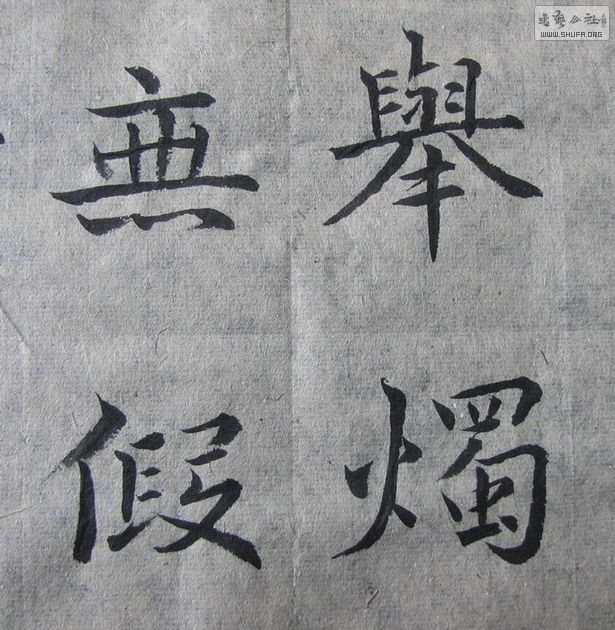 舉燭
無假
書藝公社
WWW.SHUFA.ORG